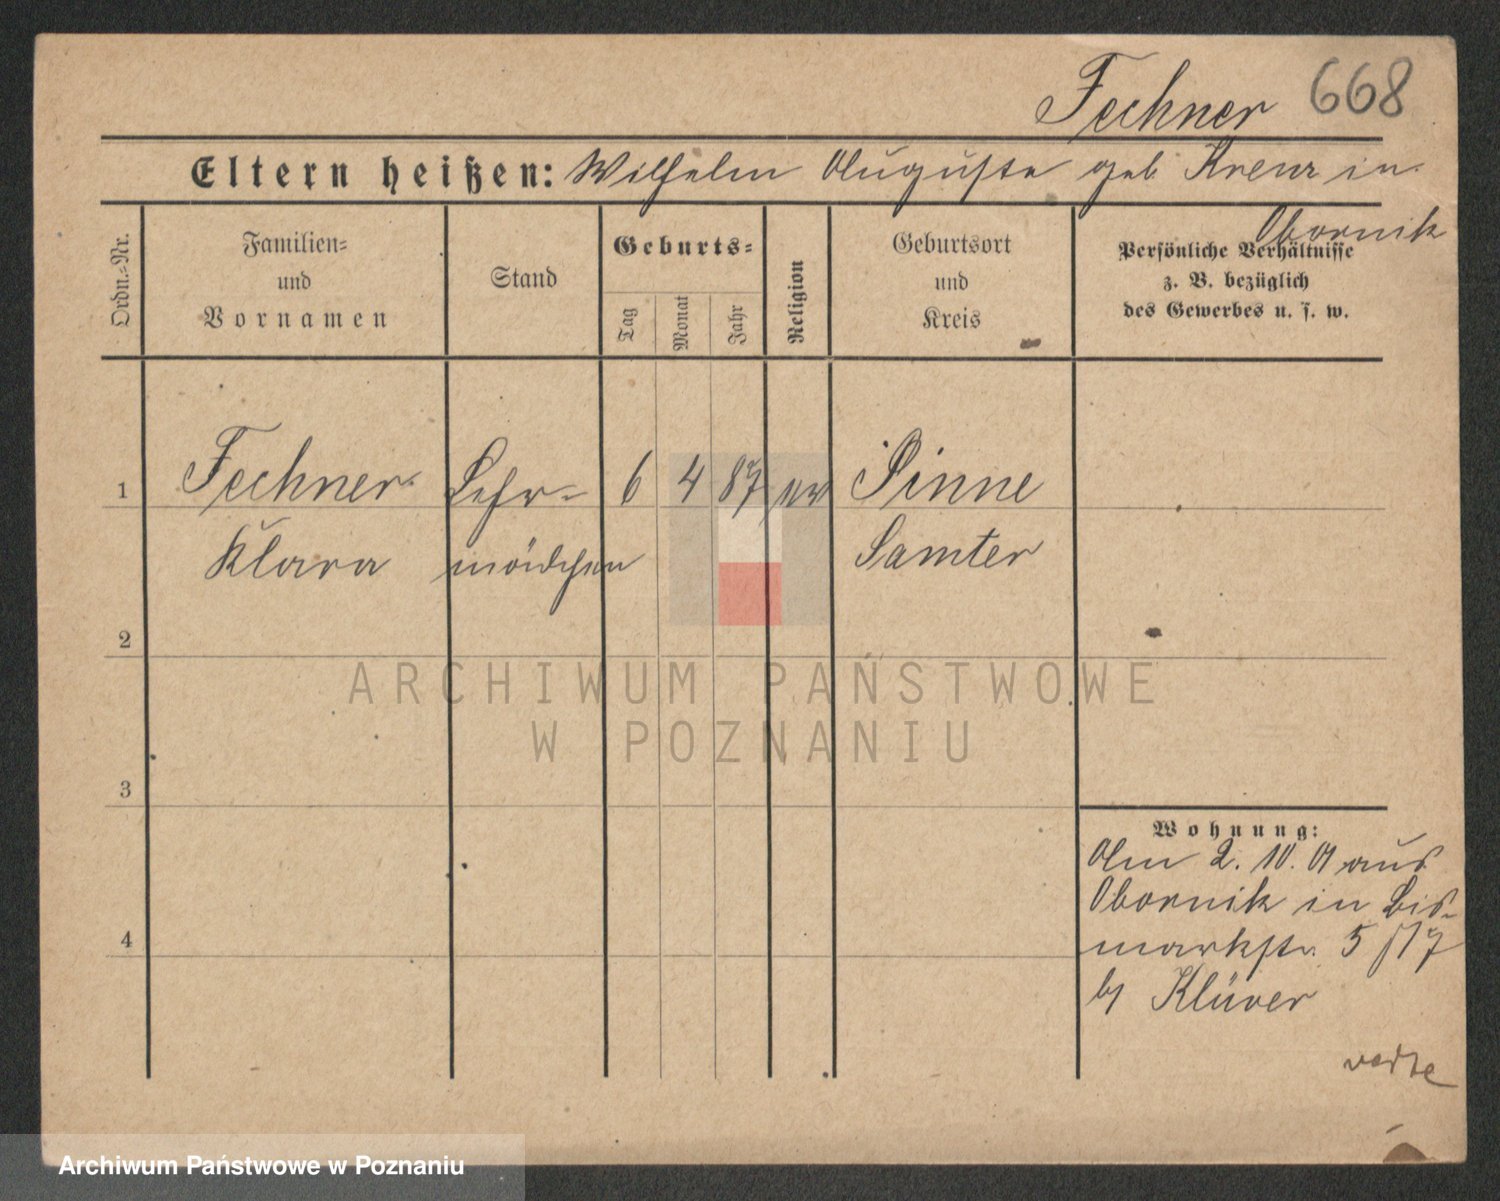 Fechner 668
Eltern heißen: Wilhelm Auguste geb. Krenz in
Obornik
Ordn.-Nr.
Familien-
und
Vornamen
Stand
Geburts-
Tag
Monat
Jahr
Religion
Geburtsort
und
Kreis
Persönliche Verhältnisse
z. B. bezüglich
des Gewerbes u. s. w.
1 Fechner Lehr- 6 4 87 ev Pinne
Klara mädchen Samter
2
ARCHIWUM PAŃSTWOWE
W POZNANIU
3
Wohnung:
Am 2. 10. 01 aus
Obornik in Bis-
4
markstr. 5
b/ Klüver
Archiwum Państwowe w Poznaniu